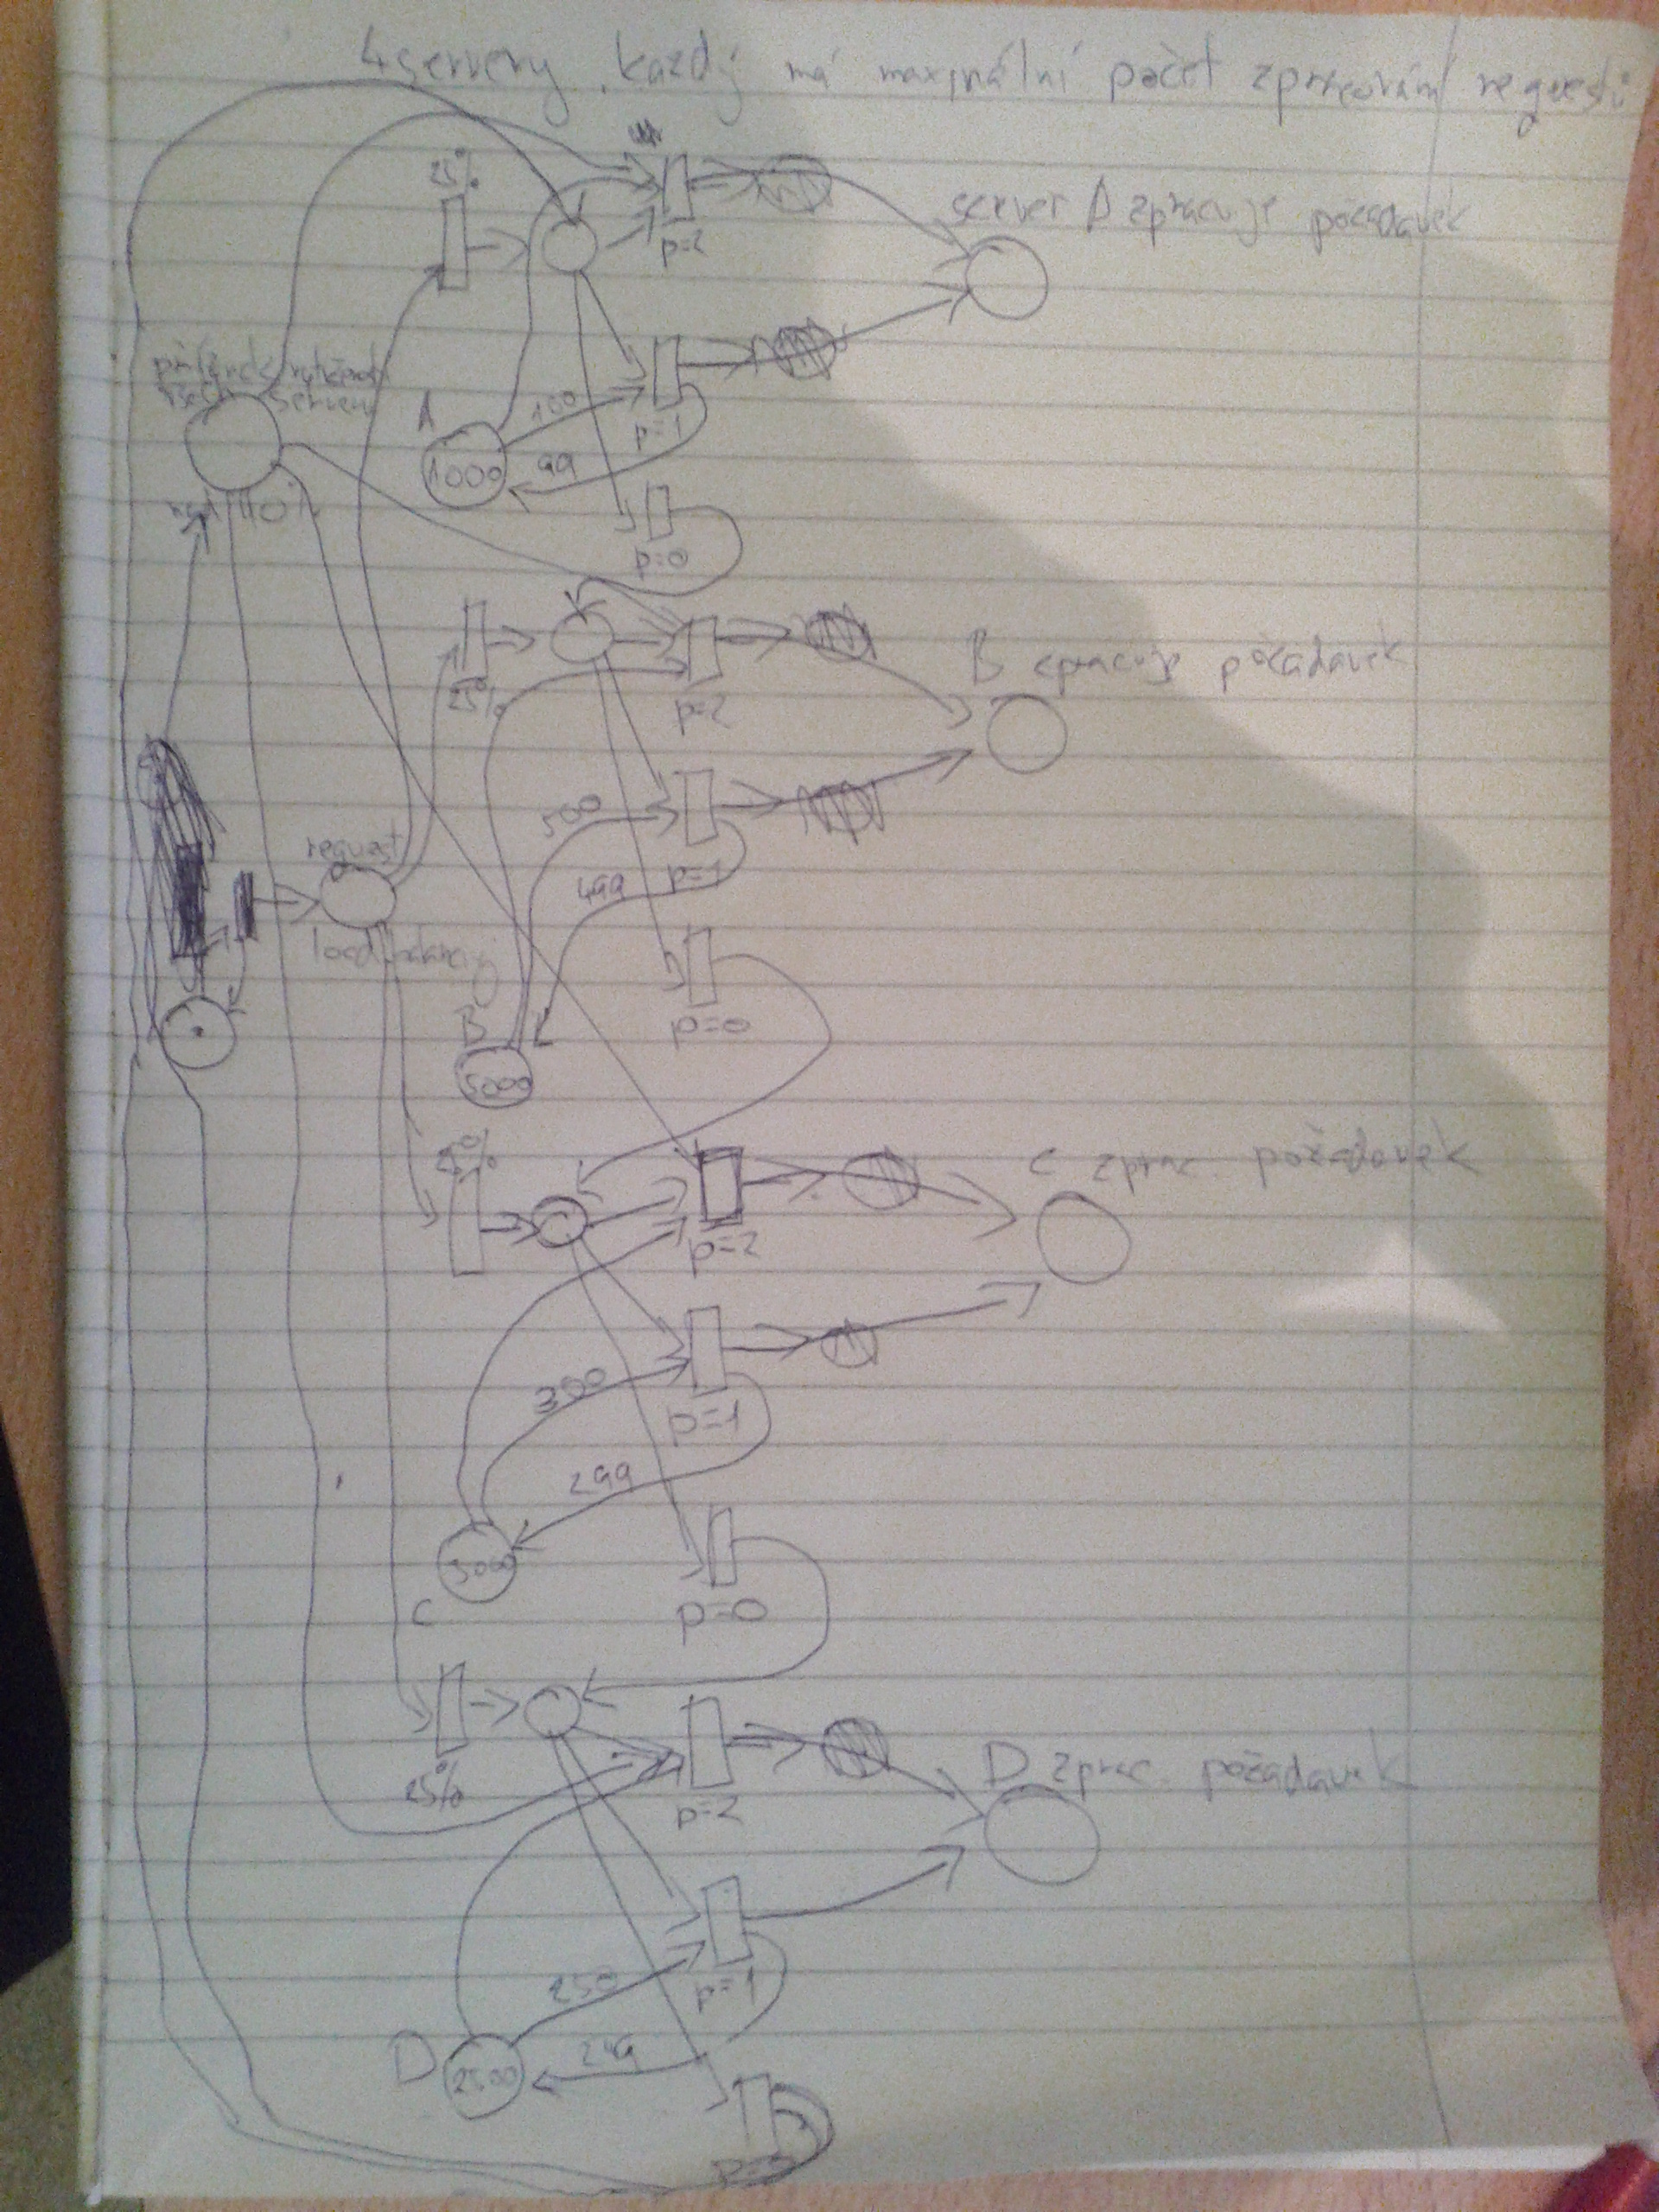 4 servery, každý má maximální počet zpracování requestů
25%
p=2
server A zpracuje požadavek
příznak vytížení
všech serverů
nad 110%
A
100
1000
99
p=1
p=0
25%
p=2
B zpracuje požadavek
500
499
p=1
request
load balancing
p=0
B
5000
25%
C zprac. požadavek
p=2
300
p=1
299
3000
C
p=0
25%
p=2
D zprac. požadavek
250
p=1
D
2500
249
p=0